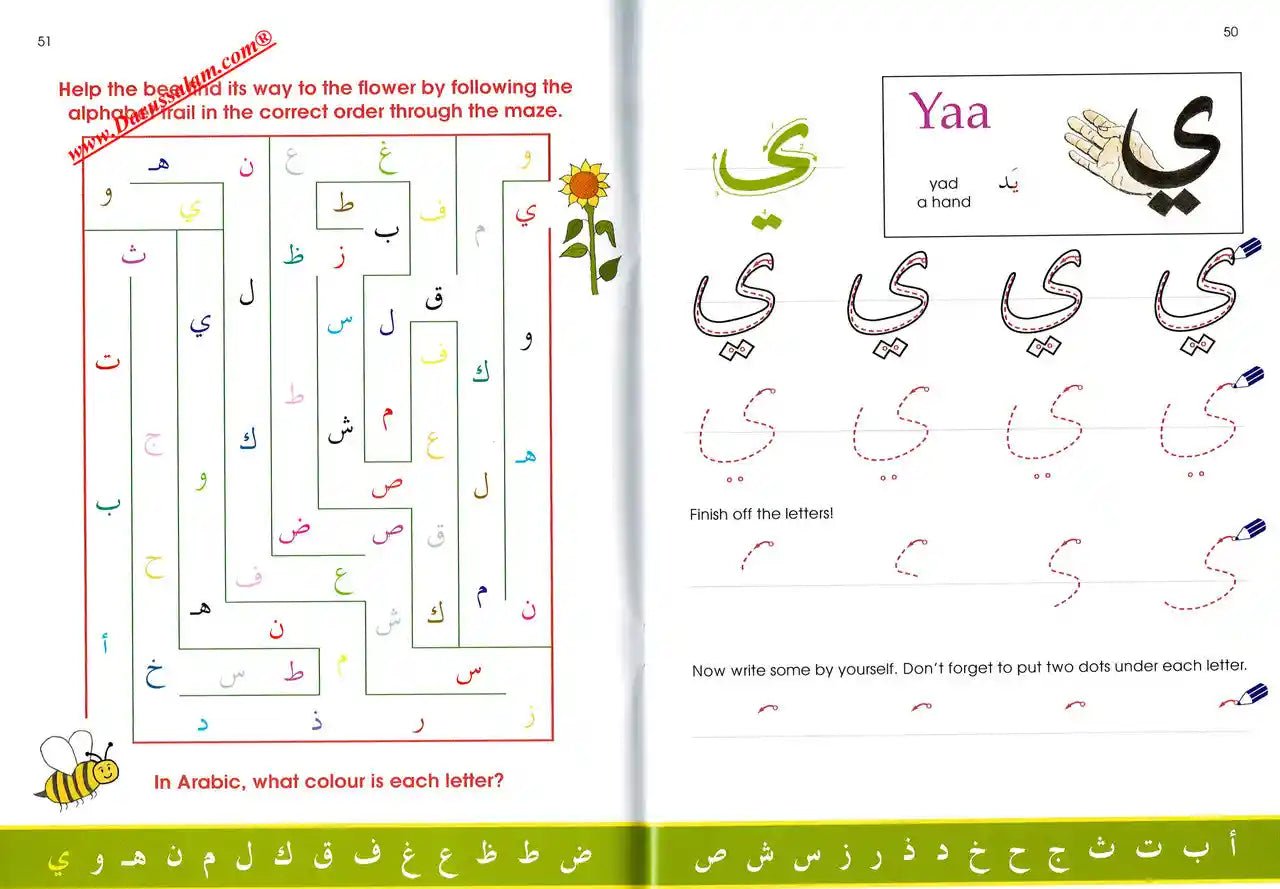 50
Yaa
ي
ي
يَد
yad
a hand
ي ي ي ي
ي ي ي ي
Finish off the letters!
Now write some by yourself. Don't forget to put two dots under each letter.
أ ب ت ث ج ح خ د ذ ر ز س ش ص
51
www.Darussalam.com®
Help the bee find its way to the flower by following the
alphabet trail in the correct order through the maze.
و غ ع ن هـ
ي ف ط ي و
م ب
ز ظ ث
ق ل
ل س ي
و
ك ف ت
م ش ط
هـ ع ك ج
ل ص و
ق ص ض ب
م ع ف ح
ن ك ش هـ
ن أ
س م ط س خ
ز ر ذ د
In Arabic, what colour is each letter?
ض ط ظ ع غ ف ق ك ل م ن هـ و ي